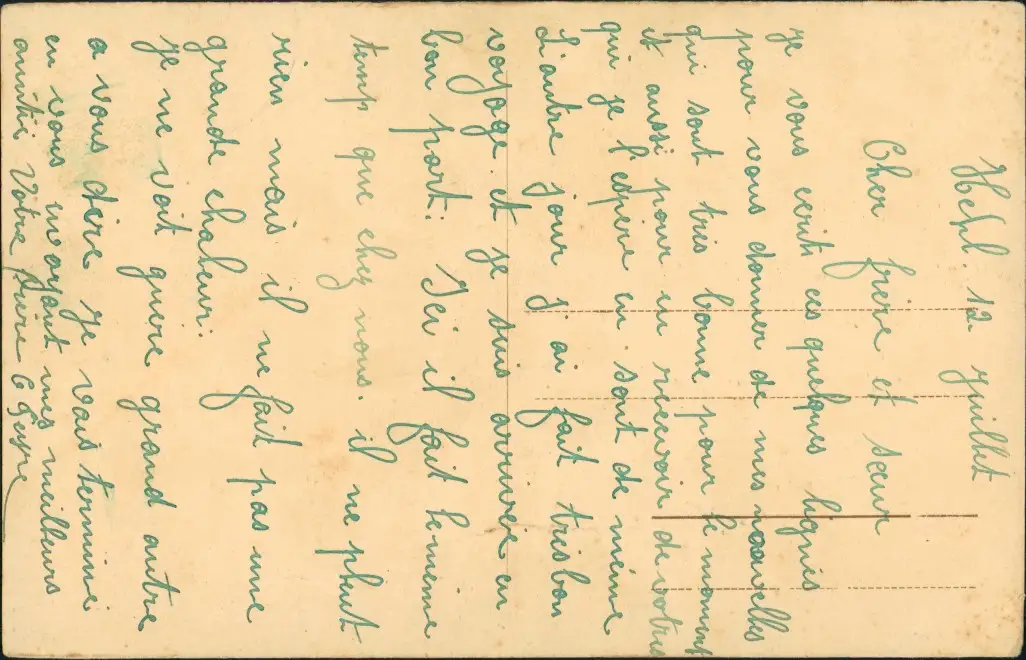 12 juillet
Cher frère et sœur
je vous ecrit ces quelques lignis
pour vous donner de mes nouvelles
qui sont tres bonne pour le moment
et aussi pour en recevoir de votres
qui je l'espère en sont de même
L'autre jour j ai fait tres bon
voyage et je suis arrivée en
bon port: Ici il fait le meme
temp que chez nous. il ne pleut
rien mais il ne fait pas une
grande chaleur:
je ne voit guere grand autre
a vous dire je vais terminé
en vous envoyant mes meilleurs
amitié Votre frère